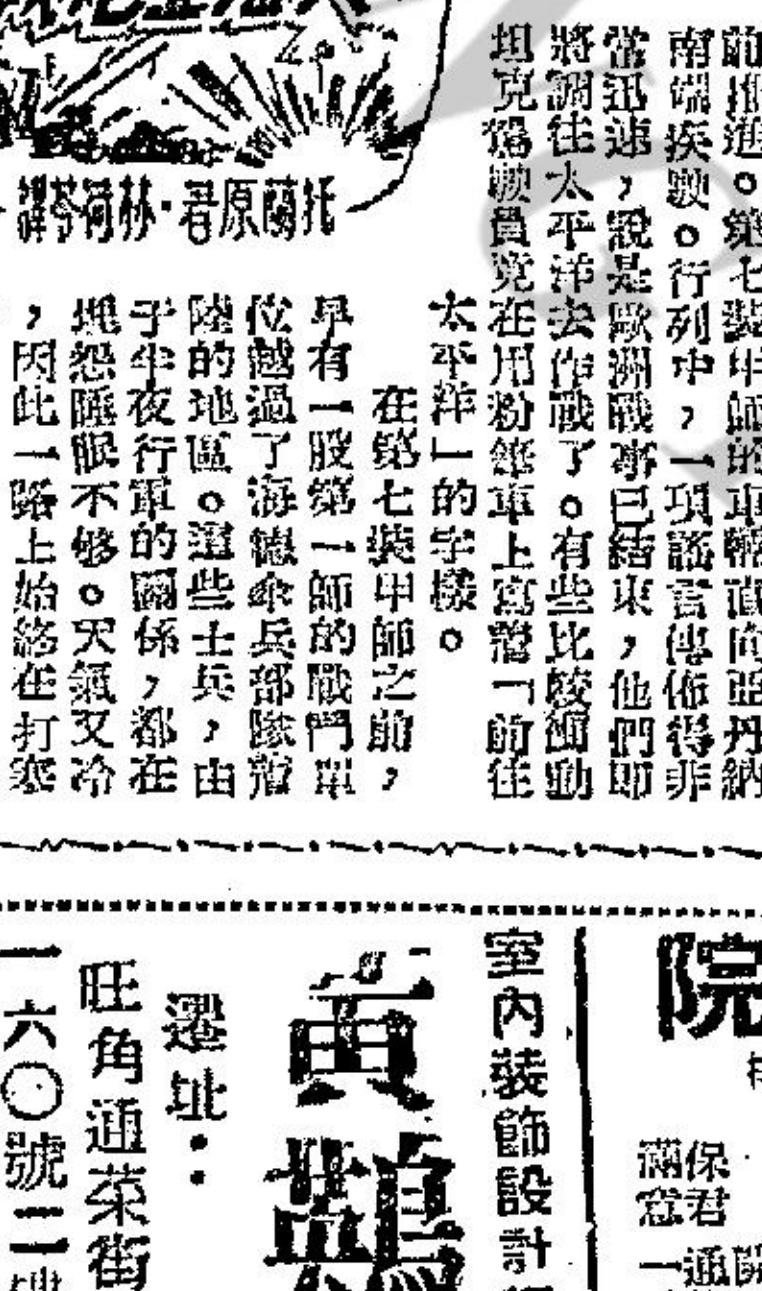 前推進。第七裝甲師的車輛直向亞丹納
南端疾駛。行列中,一項謠言傳佈得非
當迅速,說是歐洲戰事已結束,他們即
將調往太平洋去作戰了。有些比較衝動
坦克駕駛員竟在用粉筆車上寫着「前往
太平洋」的字樣。
在第七裝甲師之前,
早有一股第一師的戰鬥單
位越過了海德傘兵部隊着
陸的地區。這些士兵,由
于半夜行軍的關係,都在
埋怨睡眠不够。天氣又冷
,因此一路上始終在打寒
托蘭原君·林荷苓譯
院
保君
滿意
一通
室內裝飾設計
黃鶴
遷址:
旺角通菜街
一六〇號二樓